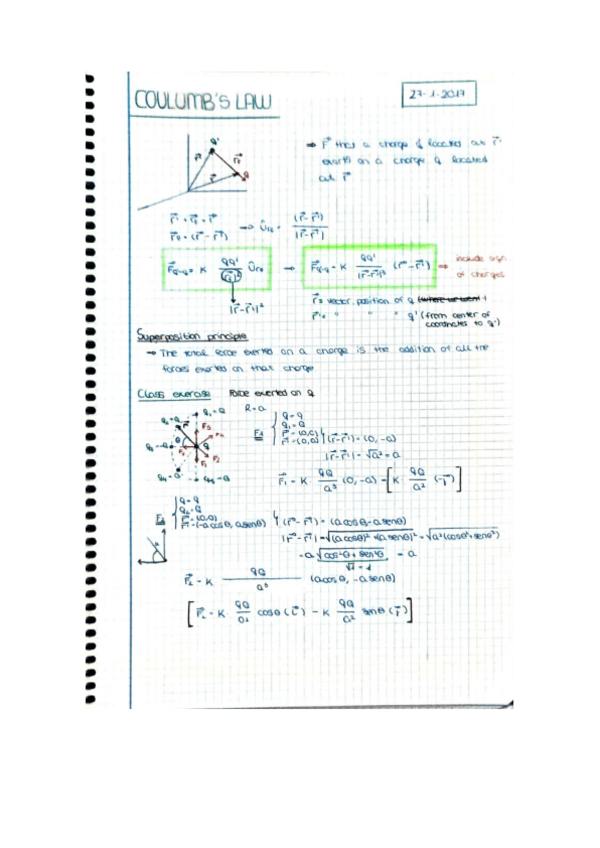 COULUMB'S LAW
27-1-2017
⇒ F⃗ that a charge q' located at r⃗'
exerts on a charge q located
at r⃗
r⃗' + r⃗₀ = r⃗
r⃗₀ = (r⃗ - r⃗') → Û = (r⃗ - r⃗') / |r⃗ - r⃗'|
F⃗ = K QQ' / Û → F⃗ = K QQ' / |r⃗ - r⃗'|³ (r⃗ - r⃗') ⇒ include sign
of charges
|r⃗ - r⃗'|²
r⃗ = vector position of q
r⃗' = " " " q' (from center of
coordinates to q')
Superposition principle
→ The total force exerted on a charge is the addition of all the
forces exerted on that charge
Class exercise Force exerted on q
R = a
Q₁ = Q
F₁ { q = q
Q₁ = Q
r⃗ = (0,0)
(r⃗ - r⃗') = (0, -a)
|r⃗ - r⃗'| = √a² = a
F⃗₁ = K · qQ / a³ (0, -a) = [K · qQ / a² (-j⃗)]
q = q
Q₂ = Q
r⃗ = (0,0)
r⃗' = (-a cosθ, a senθ) (r⃗ - r⃗') = (a cosθ, -a senθ)
|r⃗ - r⃗'| = √(a cosθ)² + (a senθ)² = √a² (cosθ² + senθ²)
= a √cos²θ + sen²θ = a
√1 = 1
F⃗₂ = K qQ / a³ (a cosθ, -a senθ)
[F⃗₂ = K · qQ / a² cosθ (i⃗) - K · qQ / a² senθ (j⃗)]